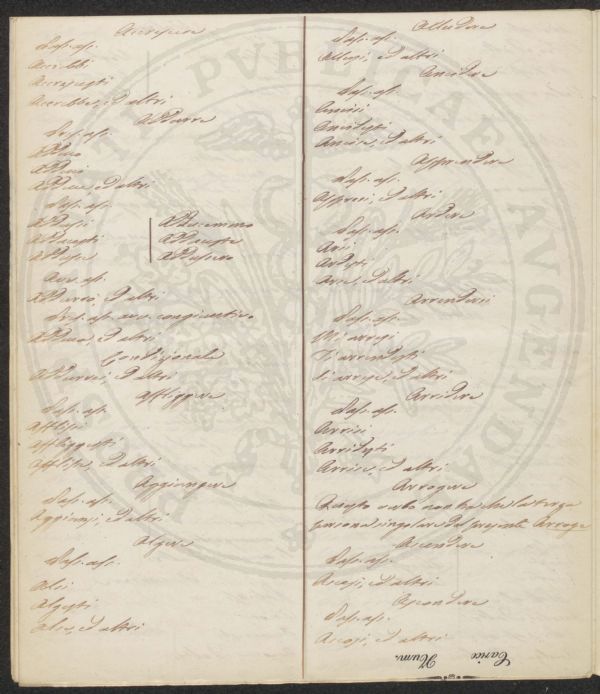 Accrescere
Pas. as.
Accrebbi
Accrescesti
Accrebbe, ed altri
Addurre
Pres. as.
Adduco
Adduci
Adduce, ed altri
Pas. as.
Addussi
Adducesti
Addusse
Adducemmo
Adduceste
Addussero
Avv. as.
Addurrò, ed altri
Pres. as. avv. congiuntivo
Adduca, ed altri
Condizionale
Addurrei, ed altri
Affliggere
Pas. as.
Afflissi
Affliggesti
Afflisse, ed altri
Aggiungere
Pas. as.
Aggiunsi, ed altri
Algere
Pas. as.
Alsi
Algesti
Alse, ed altri
Alludere
Pas. as.
Allusi, ed altri
Ancidere
Pas. as.
Ancisi
Ancidesti
Ancise, ed altri
Apprendere
Pas. as.
Appresi, ed altri
Ardere
Pas. as.
Arsi
Ardesti
Arse, ed altri
Arrendersi
Pas. as.
Mi arresi
Ti arrendesti
Si arrese, ed altri
Arridere
Pas. as.
Arrisi
Arridesti
Arrise, ed altri
Arrogere
Questo verbo non ha che la terza
persona singolare del presente Arroge
Ascendere
Pas. as.
Ascesi, ed altri
Ascondere
Pas. as.
Ascosi, ed altri
Carice
Num.
PVBLICAE AVGENDAE